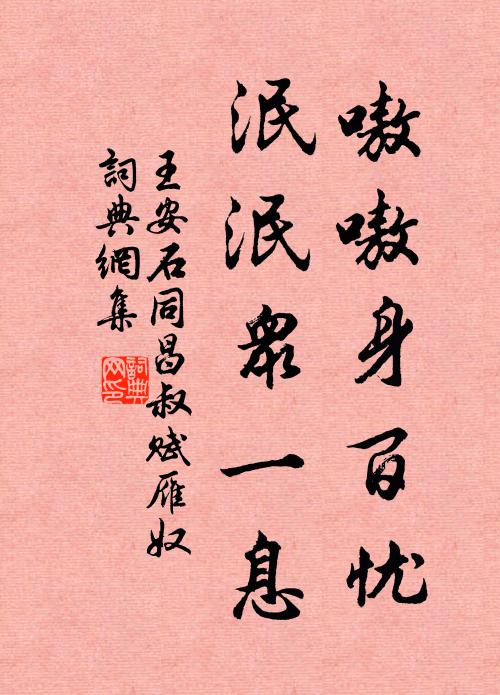 嗷嗷身百忧
泯泯眾一息
王安石同昌叔赋雁奴
詞典網集
詞典
网印